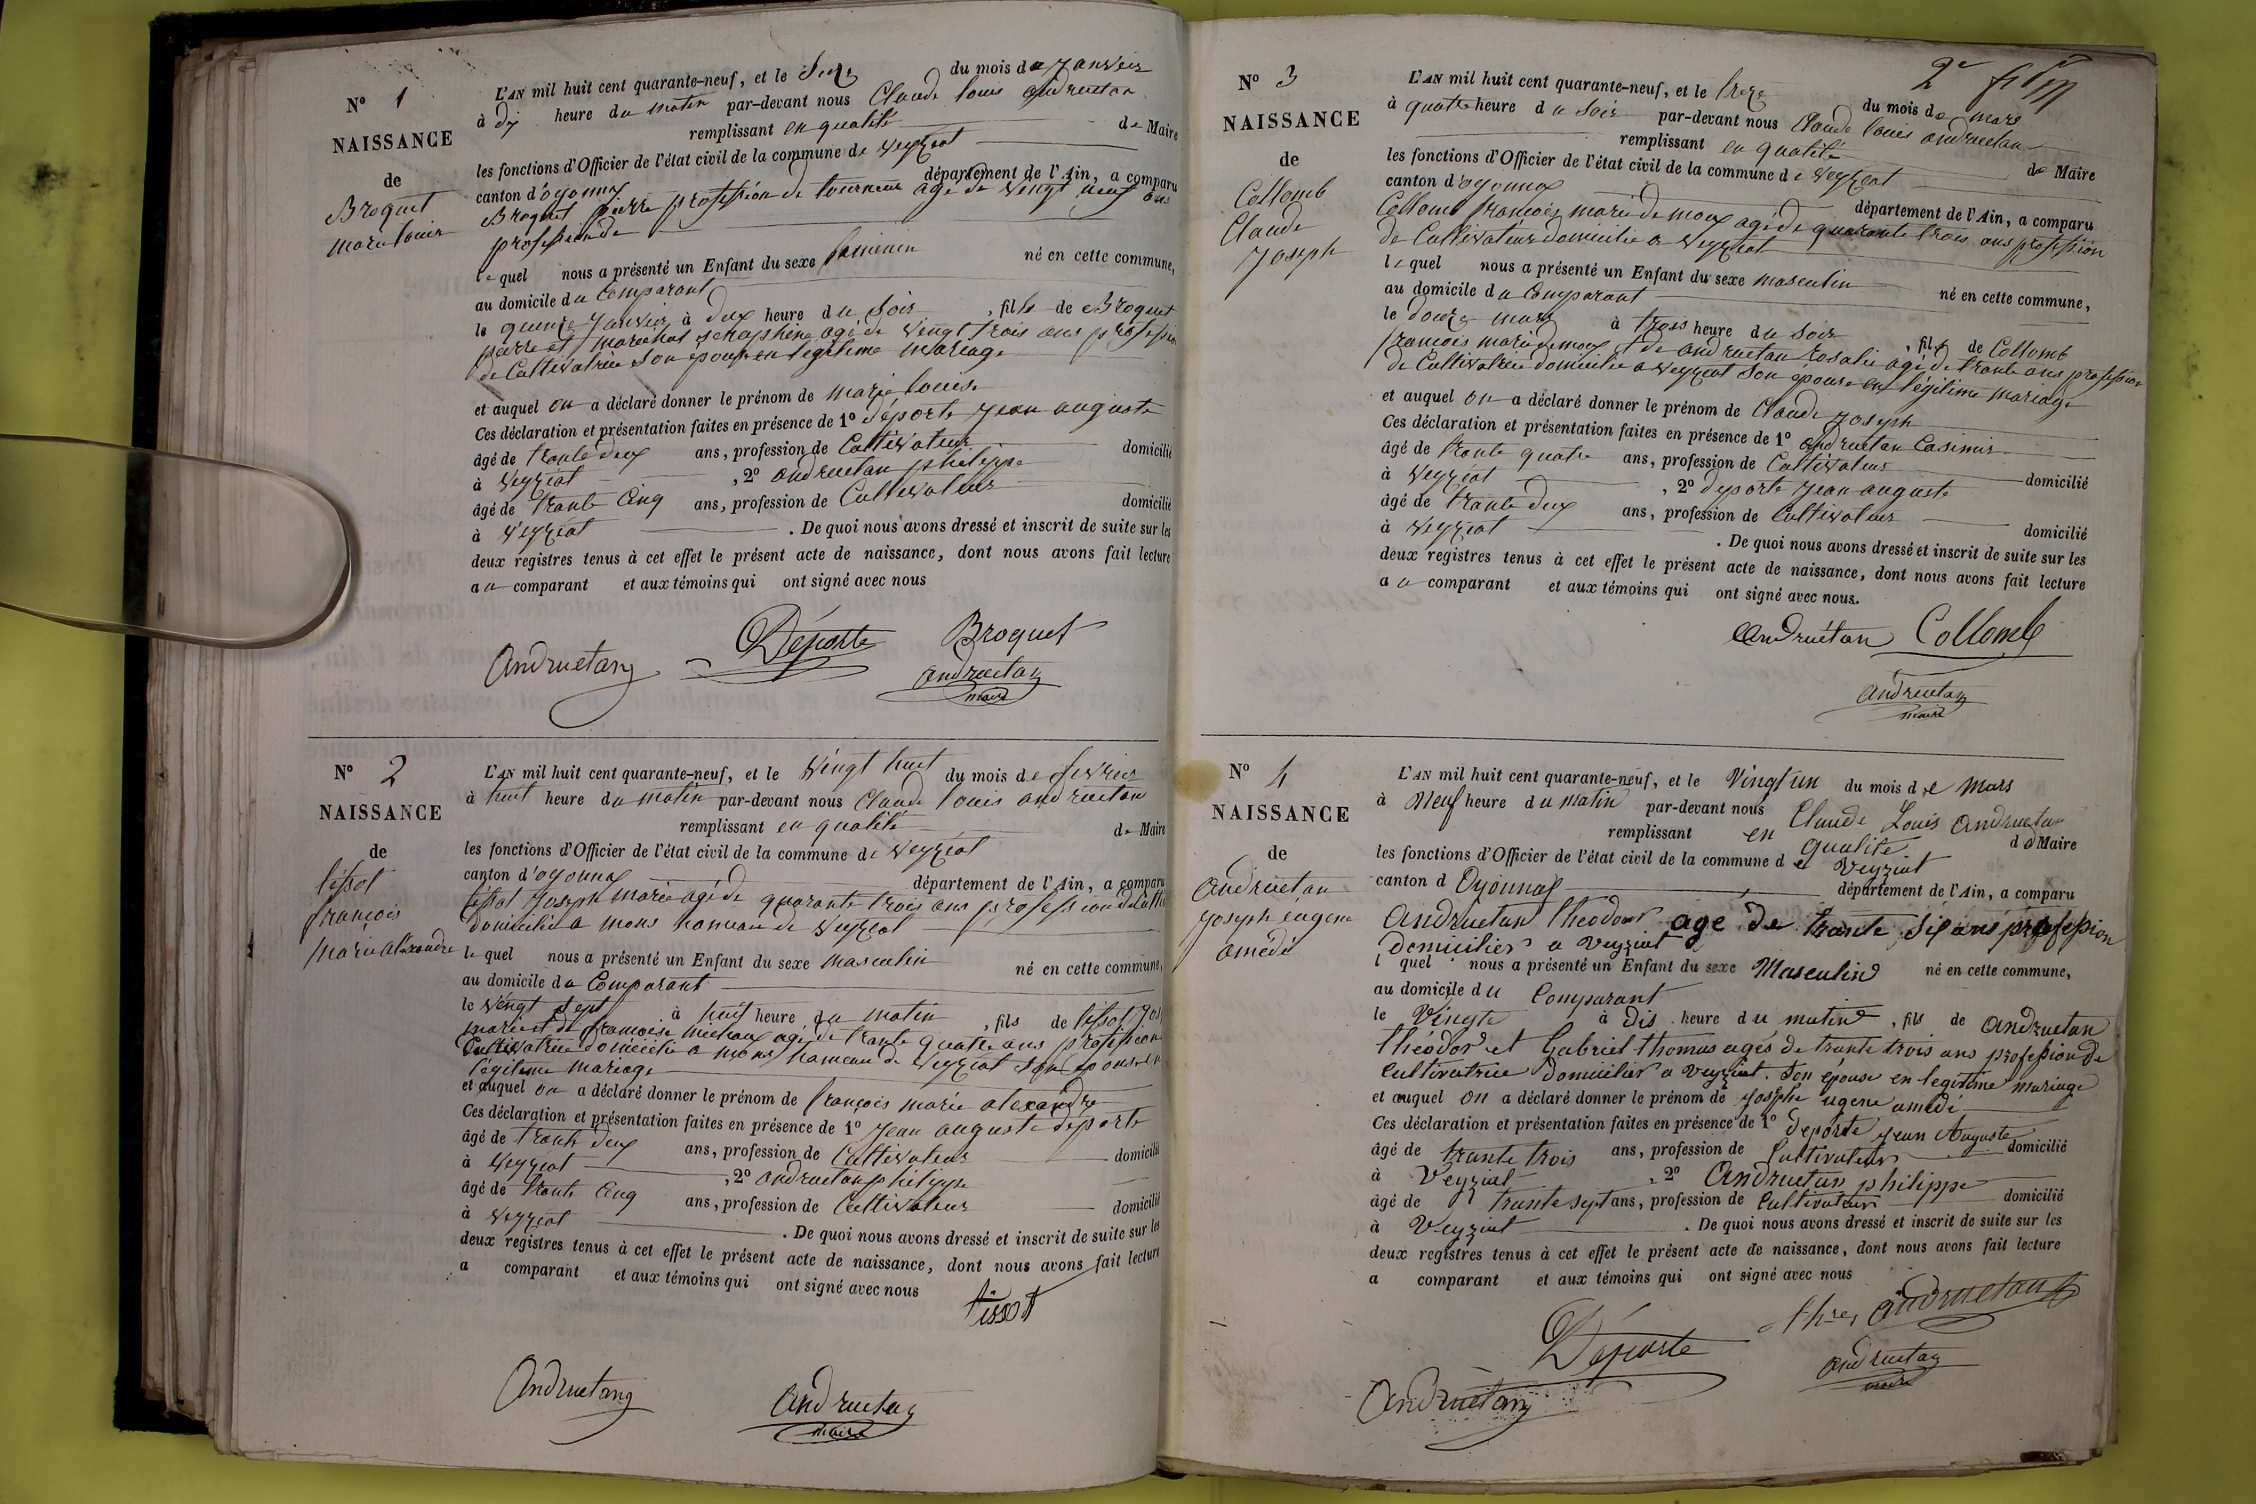 N° 1
NAISSANCE
de
Broquet
marie louise
L'AN mil huit cent quarante-neuf, et le seize du mois de janvier
à dix heure du matin par-devant nous Claude louis andruetan
remplissant en qualité de Maire
les fonctions d'Officier de l'état civil de la commune de veyziat
canton d'oyonnax département de l'Ain, a comparu
Broquet pierre profession de tourneur agé de vingt neuf ans
profession de
le quel nous a présenté un Enfant du sexe feminin né en cette commune,
au domicile du Comparant
le quinze janvier à deux heure du soir, fille de Broquet
pierre et marechal seraphine agé de vingt trois ans profession
de Cultivatrice son épouse en légitime mariage
et auquel on a déclaré donner le prénom de marie louise
Ces déclaration et présentation faites en présence de 1° déporte jean auguste
âgé de trante deux ans, profession de Cultivateur domicilié
à veyziat, 2° andruetan philippe
âgé de trante cinq ans, profession de Cultivateur domicilié
à veyziat. De quoi nous avons dressé et inscrit de suite sur les
deux registres tenus à cet effet le présent acte de naissance, dont nous avons fait lecture
au comparant et aux témoins qui ont signé avec nous
Andruetan Déporte Broquet
andruetan
maire
N° 2
NAISSANCE
de
tissot
françois
marie alexandre
L'AN mil huit cent quarante-neuf, et le vingt huit du mois de fevrier
à huit heure du matin par-devant nous Claude louis andruetan
remplissant en qualité de Maire
les fonctions d'Officier de l'état civil de la commune de veyziat
canton d'oyonnax département de l'Ain, a comparu
tissot joseph marie agé de quarante trois ans profession de Culti
domicilié a mons hameau de veyziat
le quel nous a présenté un Enfant du sexe masculin né en cette commune,
au domicile du Comparant
le vingt sept à huit heure du matin, fils de tissot jos
marie et de françoise michaux agé de trante quatre ans profession
Cultivatrice domicilié a mons hameau de veyziat son épouse en
légitime mariage
et auquel on a déclaré donner le prénom de françois marie alexandre
Ces déclaration et présentation faites en présence de 1° jean auguste déporte
âgé de trante deux ans, profession de Cultivateur domicilié
à veyziat, 2° andruetan philippe
âgé de trante cinq ans, profession de Cultivateur domicilié
à veyziat. De quoi nous avons dressé et inscrit de suite sur les
deux registres tenus à cet effet le présent acte de naissance, dont nous avons fait lecture
a comparant et aux témoins qui ont signé avec nous
tissot
Andruetan andruetan
maire
N° 3
NAISSANCE
de
Collomb
Claude
joseph
L'AN mil huit cent quarante-neuf, et le treze du mois de mars
à quatre heure du soir par-devant nous Claude louis andruetan
remplissant en qualité de Maire
les fonctions d'Officier de l'état civil de la commune de veyziat
canton d'oyonnax département de l'Ain, a comparu
Collomb françois marie demoux agé de quarante trois ans profession
de Cultivateur domicilié a veyziat
le quel nous a présenté un Enfant du sexe masculin né en cette commune,
au domicile du Comparant
le douze mars à trois heure du soir, fils de Collomb
françois marie demoux et de andruetan rosalie agé de trante ans profession
de Cultivatrice domicilié a veyziat son épouse en légitime mariage
et auquel on a déclaré donner le prénom de Claude joseph
Ces déclaration et présentation faites en présence de 1° andruetan Casimir
âgé de trante quatre ans, profession de Cultivateur domicilié
à veyziat, 2° deporte jean auguste
âgé de trante deux ans, profession de Cultivateur domicilié
à veyziat. De quoi nous avons dressé et inscrit de suite sur les
deux registres tenus à cet effet le présent acte de naissance, dont nous avons fait lecture
au comparant et aux témoins qui ont signé avec nous.
Andruétan Collomb
andruetan
maire
N° 4
NAISSANCE
de
andruetan
joseph éugene
amédé
L'AN mil huit cent quarante-neuf, et le Vingt un du mois de Mars
à Neuf heure du matin par-devant nous Claude Louis andruetan
remplissant en qualité de Maire
les fonctions d'Officier de l'état civil de la commune de Veyziat
canton d Oyonnax département de l'Ain, a comparu
Andruetan théodor agé de trante six ans profession
domicilier a veyziat
l quel nous a présenté un Enfant du sexe Masculin né en cette commune,
au domicile du Comparant
le Vingte à dis heure du matin, fils de andruetan
théodor et Gabriel thomas agés de trante trois ans profession de
Cultivatrice domicilier a veyziat. Son épouse en legitime mariage
et auquel on a déclaré donner le prénom de joseph ugene amédé
Ces déclaration et présentation faites en présence de 1° deporte jean Auguste
âgé de trante trois ans, profession de Cultivateur domicilié
à Veyziat, 2° Andruetan philippe
âgé de trante sept ans, profession de Cultivateur domicilié
à Veyziat. De quoi nous avons dressé et inscrit de suite sur les
deux registres tenus à cet effet le présent acte de naissance, dont nous avons fait lecture
a comparant et aux témoins qui ont signé avec nous
Déporte thre andruetan
Andruetan andruetan
maire